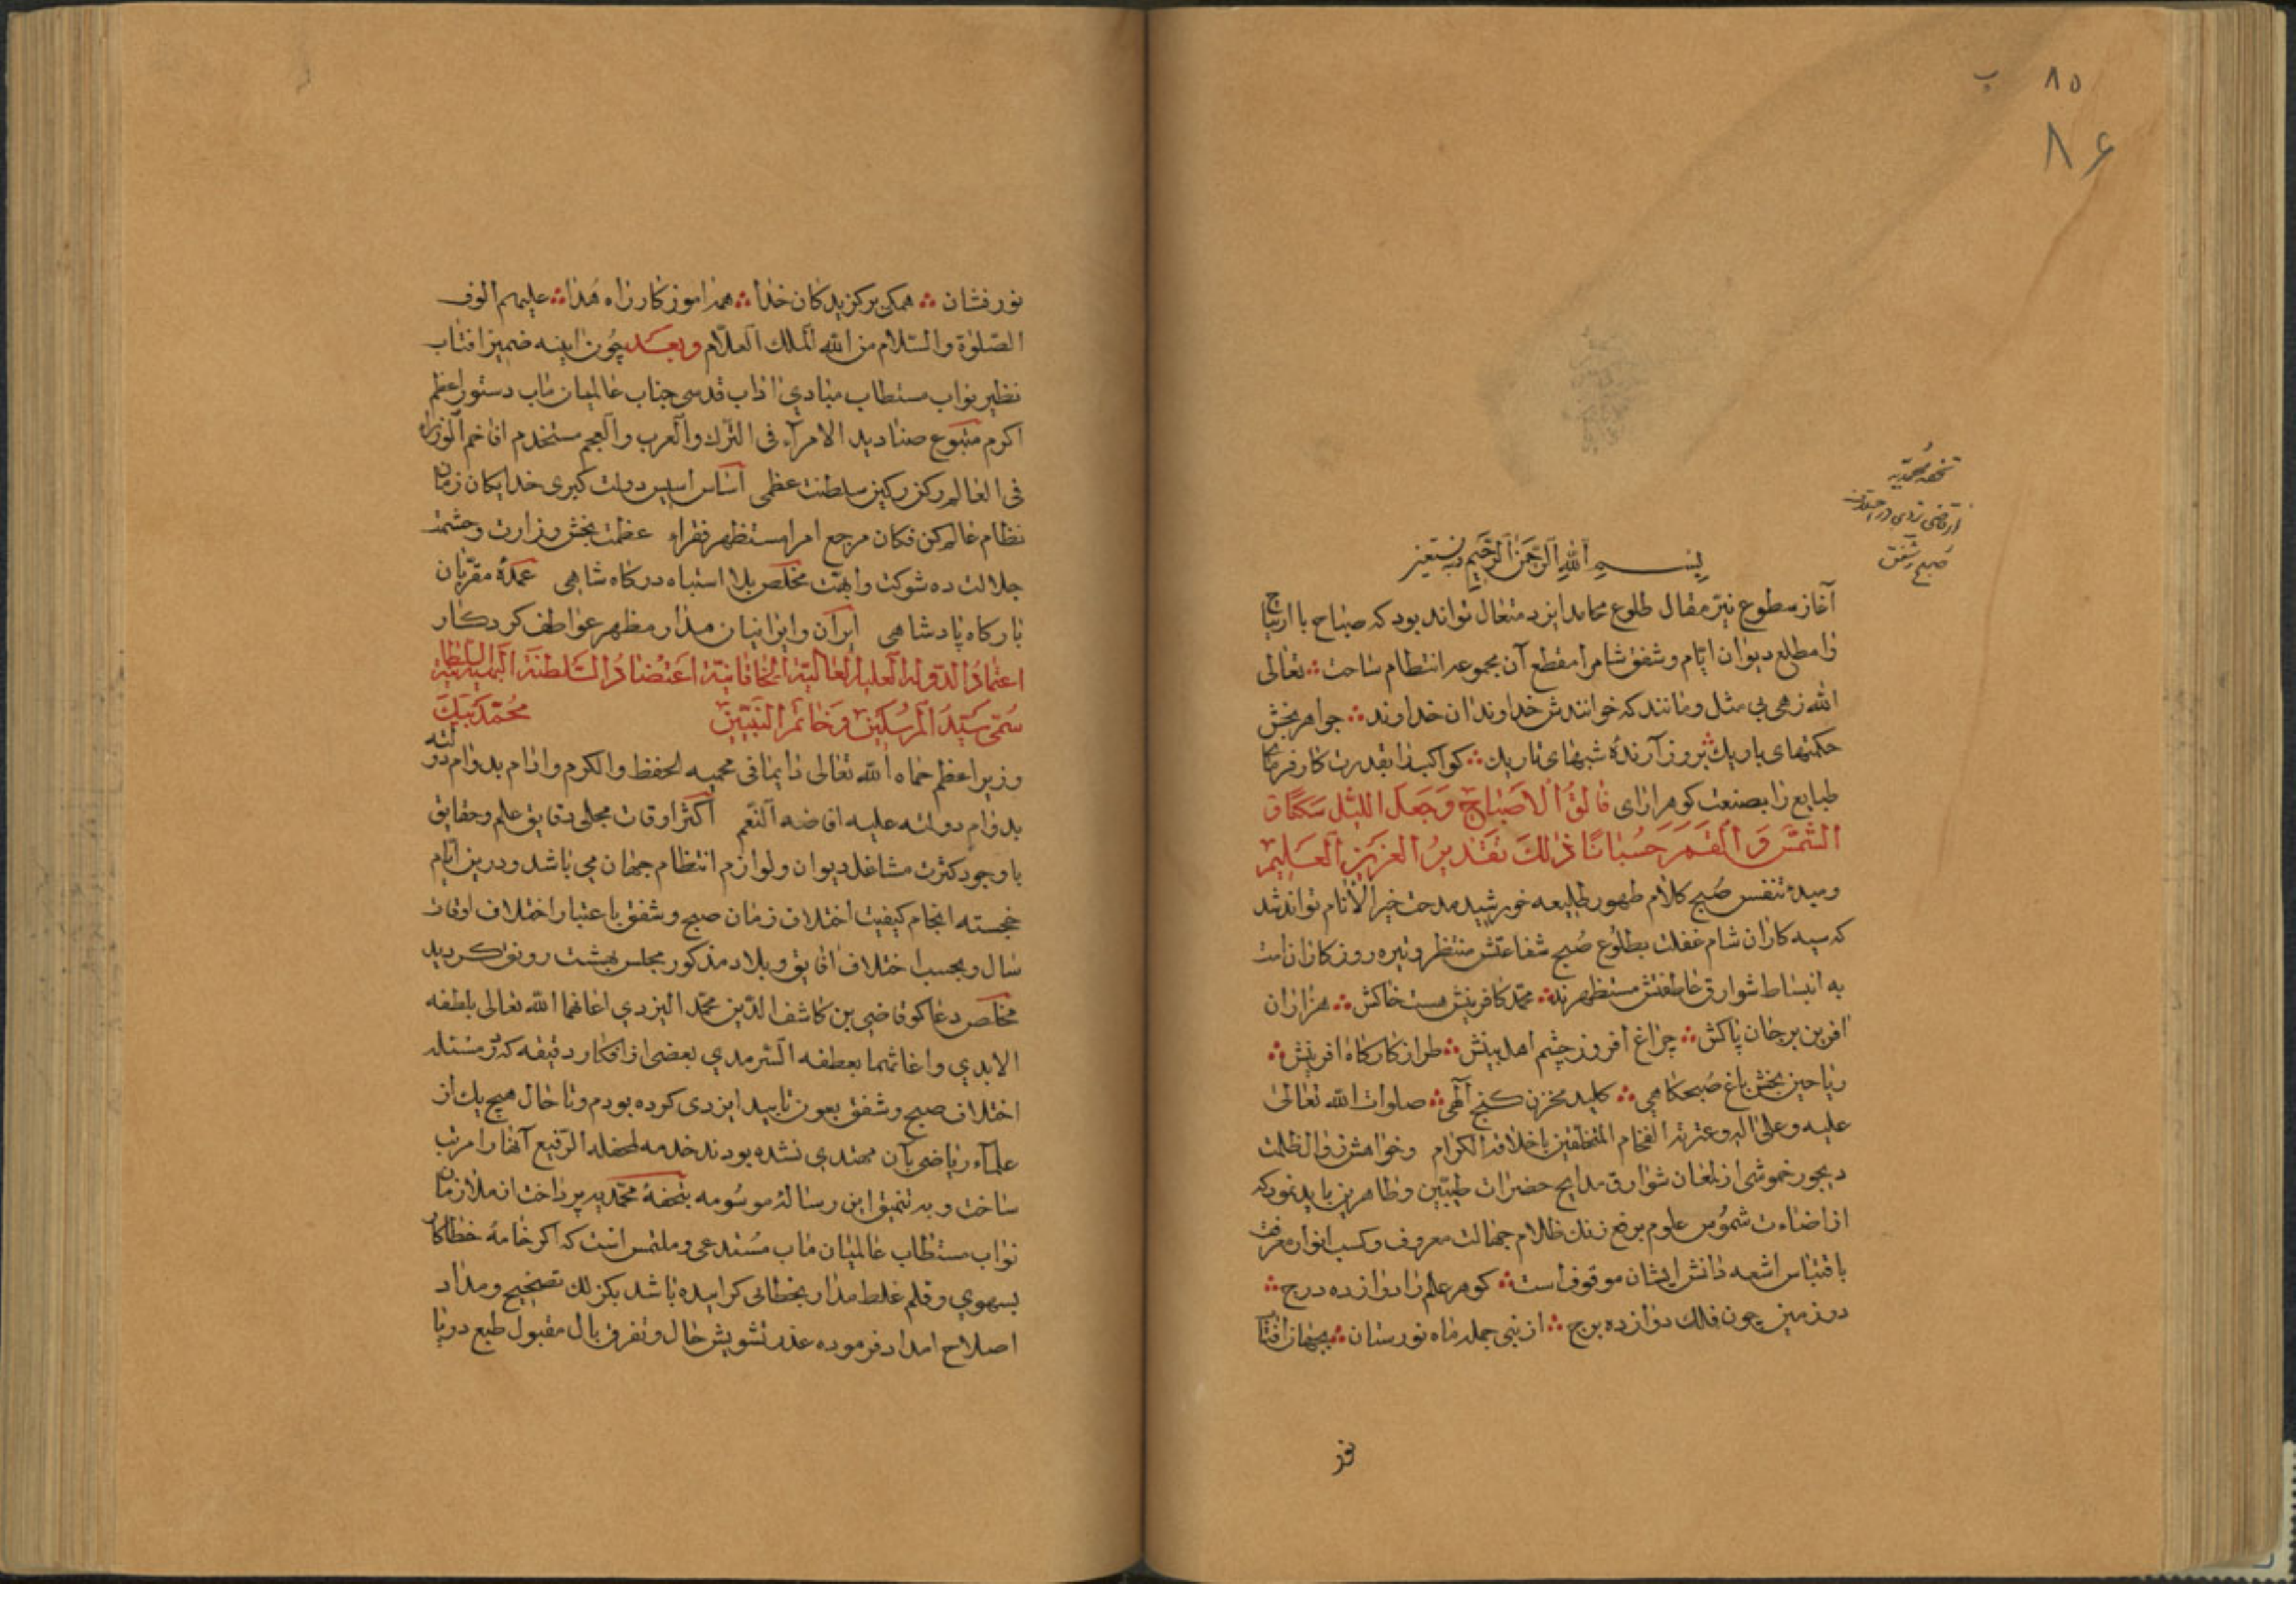 ۸۵ ب
۸۶
تحفه محمدیه
از قاضی یزدی در اختلاف
صبح و شفق
بسم الله الرحمن الرحیم و به نستعین
آغاز سطوع نیر مقال طلوع محامد ایزد متعال تواند بود که صباح با ارتیاح
را مطلع دیوان ایام و شفق شام را مقطع آن مجموعه انتظام ساخت ؞ تعالی
الله زهی بی مثل و مانند که خوانندش خداوندان خداوند ؞ جواهر بخش
حکمتهای باریک ؞ بروز آرندهٔ شبهای تاریک ؞ کواکب را بقدرت کار فرمای
طبایع را بصنعت گوهر ارای فَالِقُ الْاَصْبَاحِ وَجَعَلَ اللَّیْلَ سَکَنًا وَ
الشَّمْسَ وَالْقَمَرَ حُسْبَانًا ذٰلِکَ تَقْدِیرُ الْعَزِیزِ الْعَلِیمِ
و مبدء تنفس صُبح کلام ظهور طلیعه خورشید مدحت خیر الانام تواند شد
که سیه کاران شام غفلت بطلوع صُبح شفاعتش منتظر و تیره روزکاران امت
به انبساط شوارق عاطفتش مستظهرند ؞ محمد کافرینش هست خاکش ؞ هزاران
افرین بر جان پاکش ؞ چراغ افروز چشم اهل بینش ؞ طراز کارکاه افرینش ؞
ریاحین بخش باغ صُبحکاهی ؞ کلید مخزن کنج آلهی ؞ صلوات الله تعالی
علیه و علی اله و عترته الفخام المتخلقین باخلاقه الکرام و خواهش زوال ظلمت
دیجور خموشی از لمعان شوارق مدایح حضرات طیبین و طاهرین باید نمود که
از اضاءت شموس علوم بر رفع زنك ظلام جهالت معروف و کسب انوار معرفت
باقتباس اشعه دانش ایشان موقوف است ؞ کوهر علم را دوازده درج ؞
در زمین چون فلك دوازده برج ؞ از نبی جمله ماه نورستان ؞ بجهان آفتاب
نور
نور فشان ؞ همکی برکزیدکان خدا ؞ همه اموزکار راه هُدا ؞ علیهم الوف
الصّلوة والسّلام من الله الملك العلّام وبعــد چون اینه ضمیر افتاب
نظیر نواب مستطاب مبادی اداب قدسی جناب عالمیان ماب دستور اعظم
اکرم متبوع صنادید الامرآء فی الترك والعرب والعجم مستخدم افاخم الوزراء
فی العالم رکن رکین سلطنت عظمی اساس اسیس دولت کبری خدایکان زمان
نظام عالم کن فکان مرجع امرا مستظهر فقراء عظمت بخش وزارت و حشمت
جلالت ده شوکت و ابهت مخلص بلا اشتباه درکاه شاهی عمدهٔ مقرّبان
بارکاه پادشاهی ایران و ایرانیان مدار مظهر عواطف کردکار
اعتمادُ الدّولة العلیة العالیّة الخاقانیّة اعتضادُ السّلطنة البهیة السلطانیة
سَمّی سَیّدُ المرسَلین وخاتم النّبیّین محُمّد بَیك
وزیر اعظم حماه الله تعالی دایما فی محمیه الحفظ والکرم وادام بدوام دولته
بدوام دولته علیه افاضه النّعم اکثر اوقات مجلی دقایق علم و حقایق
باوجود کثرت مشاغل دیوان و لوازم انتظام جهان می باشد و درین ایّام
خجسته انجام کیفیت اختلاف زمان صبح و شفق باعتبار اختلاف اوقات
سال و بحسب اختلاف افایق و بلاد مذکور مجلس بهشت رونق کردید
مخلص دعاکو قاضی بن کاشف الدّین محمّد الیزدی اعانهما الله تعالی بلطفه
الابدی و اغاثهما بعطفه السّرمدی بعضی از افکار دقیقه که در مسئله
اختلاف صبح و شفق بعون تایید ایزدی کرده بودم و تا حال هیچ یك از
علمآء ریاضی بآن مهتدی نشده بودند خدمه لمحفله الرّفیع آنها را مرتب
ساخت و به تنمیق این رسالهٔ موسُومه بتحفهٔ محمّدیه پرداخت از ملازمان
نواب مستطاب عالمیان ماب مُستدعی و ملتمس است که اکر خامهٔ خطاکار
بسهوی و قلم غلط مدار بخطائی کراییده باشد بکزلك تصحیح و مداد
اصلاح امداد فرموده عذر تشویش حال و تفرق بال مقبول طبع دریا